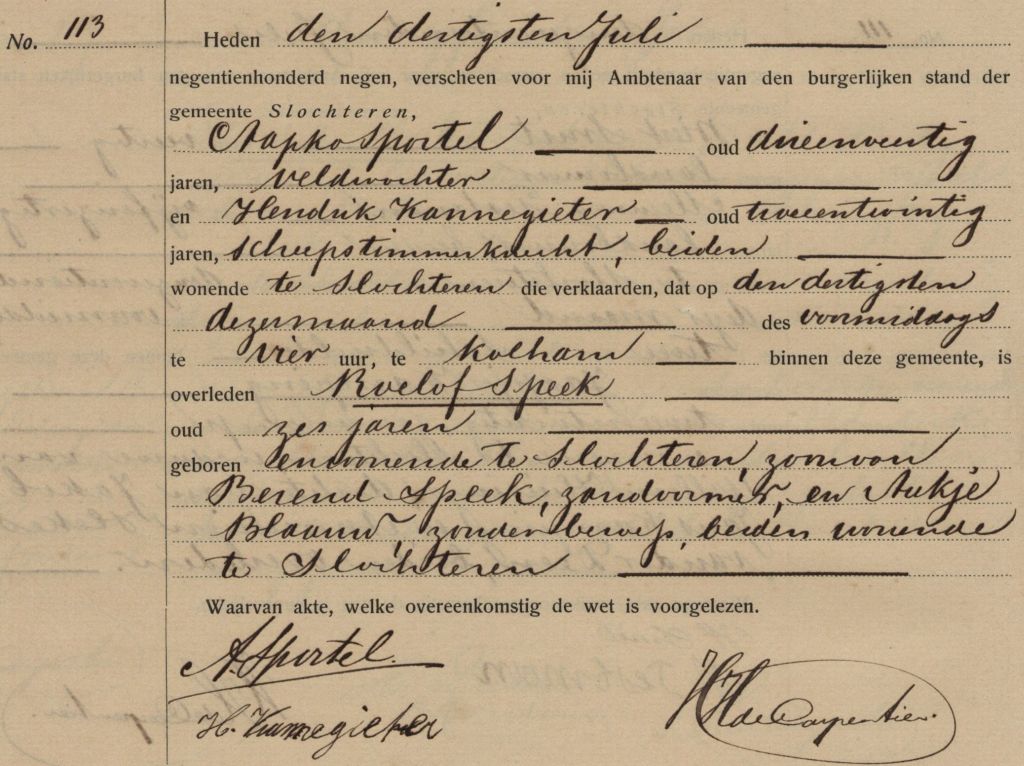 No. 113
Heden den dertigsten Juli
negentienhonderd negen, verscheen voor mij Ambtenaar van den burgerlijken stand der
gemeente Slochteren,
Aapko Sportel oud drieenveertig
jaren, veldwachter
en Hendrik Kannegieter oud tweeentwintig
jaren, scheepstimmerknecht, beiden
wonende te Slochteren die verklaarden, dat op den dertigsten
dezer maand des voormiddags
te vier uur, te Kolham binnen deze gemeente, is
overleden Roelof Speek
oud zes jaren
geboren en wonende te Slochteren, zoon van
Berend Speek, zandvormer, en Aukje
Blaauw, zonder beroep, beiden wonende
te Slochteren
Waarvan akte, welke overeenkomstig de wet is voorgelezen.
A. Sportel.
H. Kannegieter
HH de Carpentier.